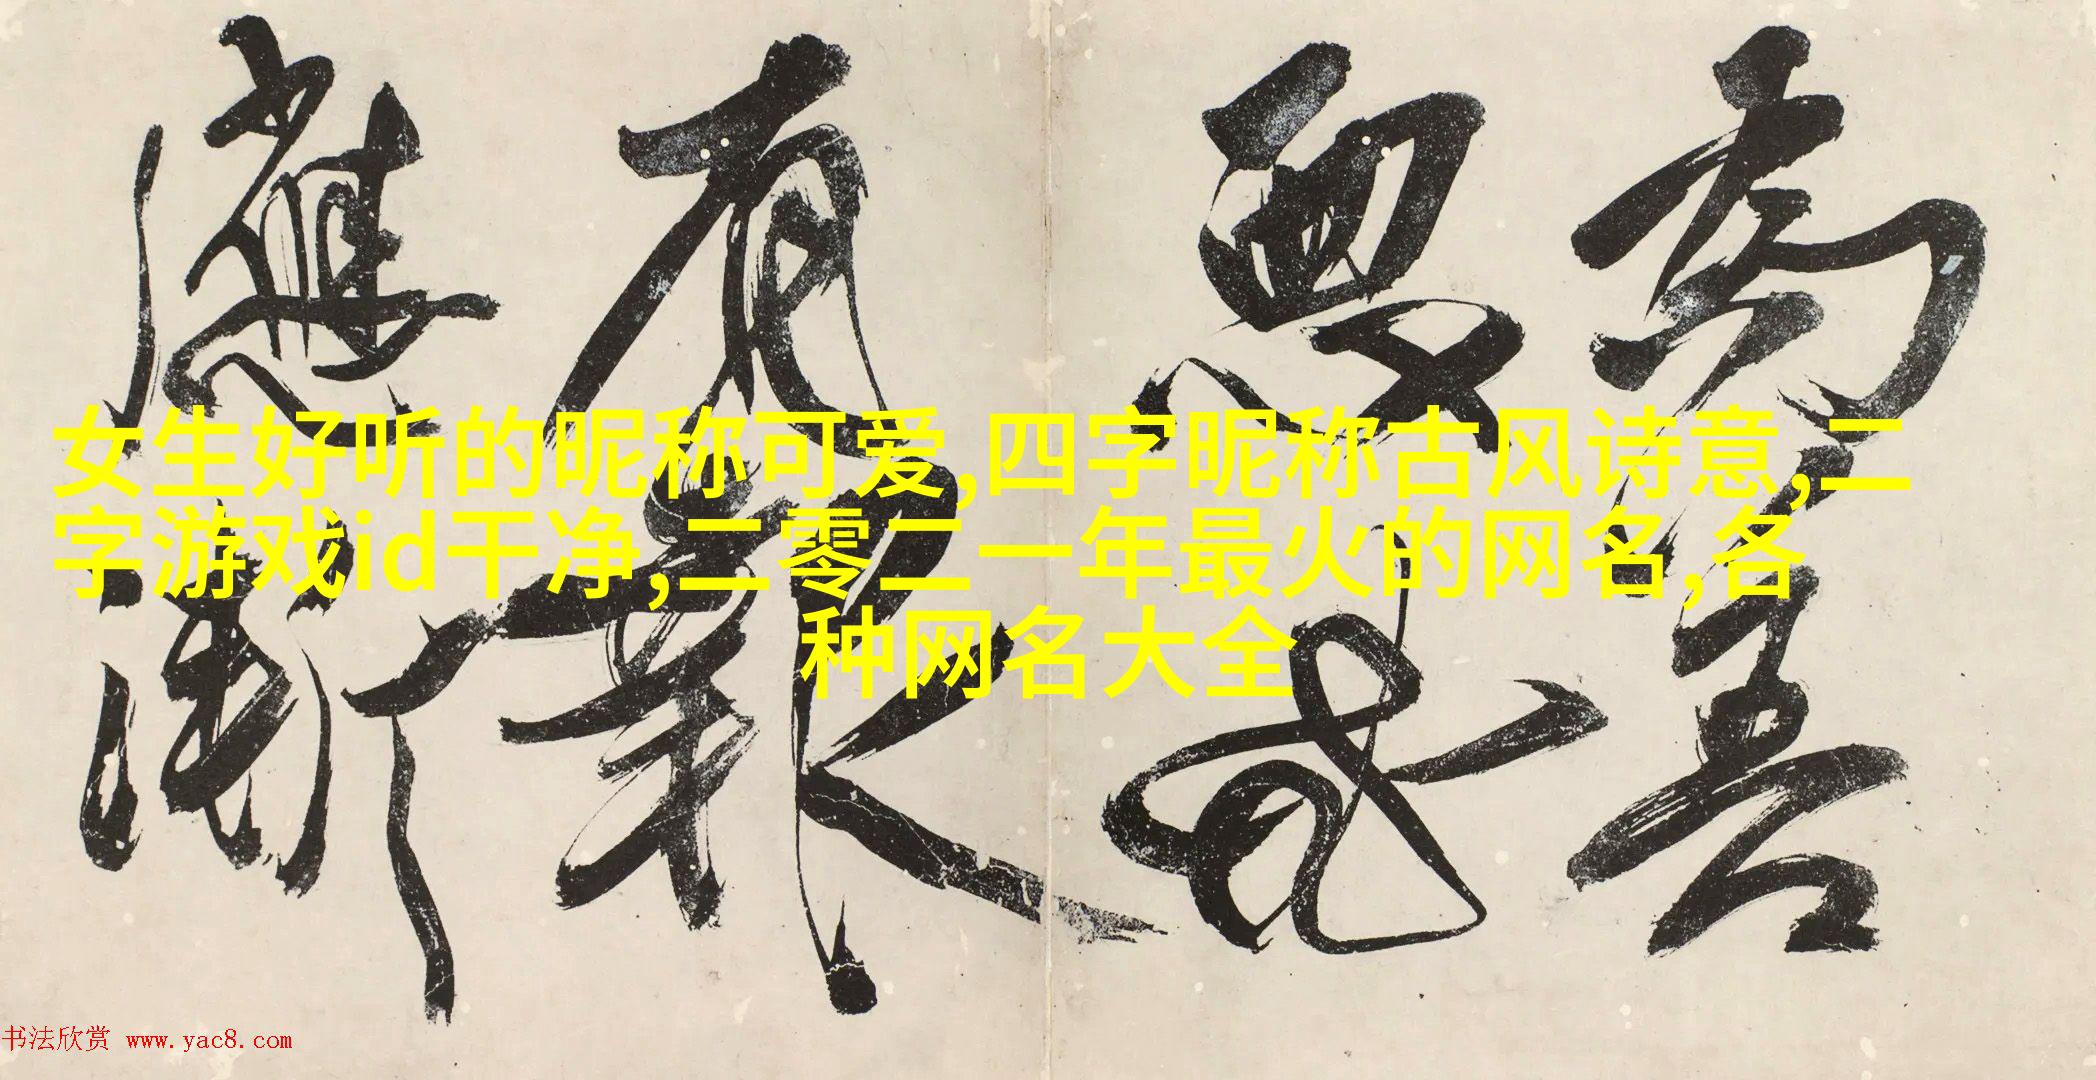 女生好听的昵称可爱,四字昵称古风诗意,二
字游戏id干净,二零二一年最火的网名,各
种网名大全
為善
惡
有報
應
书法欣赏 www.yac8.com